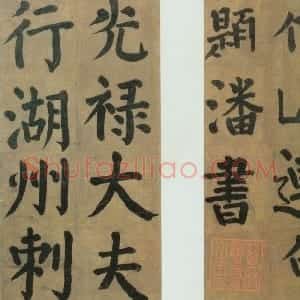 山連
題潘書
光禄大夫
行湖州刺
Shufaziliao.COM